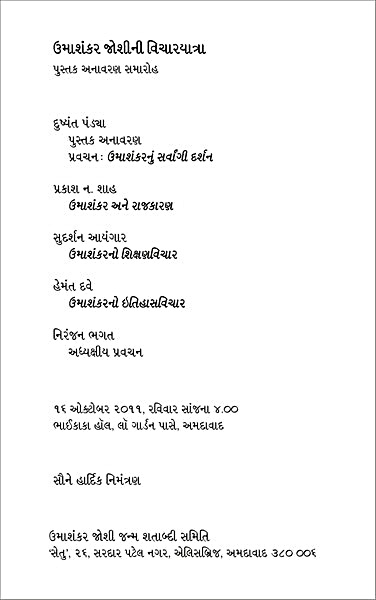 ઉમાશંકર જોશીની વિચારયાત્રા
પુસ્તક અનાવરણ સમારોહ
દુષ્યંત પંડ્યા
પુસ્તક અનાવરણ
પ્રવચન: ઉમાશંકરનું સર્વાંગી દર્શન
પ્રકાશ ન. શાહ
ઉમાશંકર અને રાજકારણ
સુદર્શન આયંગાર
ઉમાશંકરનો શિક્ષણવિચાર
હેમંત દવે
ઉમાશંકરનો ઇતિહાસવિચાર
નિરંજન ભગત
અધ્યક્ષીય પ્રવચન
૧૬ ઓક્ટોબર ૨૦૧૧, રવિવાર સાંજના ૪.૦૦
ભાઈકાકા હૉલ, લૉ ગાર્ડન પાસે, અમદાવાદ
સૌને હાર્દિક નિમંત્રણ
ઉમાશંકર જોશી જન્મ શતાબ્દી સમિતિ
'સેતુ', ૨૬, સરદાર પટેલ નગર, એલિસબ્રિજ, અમદાવાદ ૩૮૦ ૦૦૬